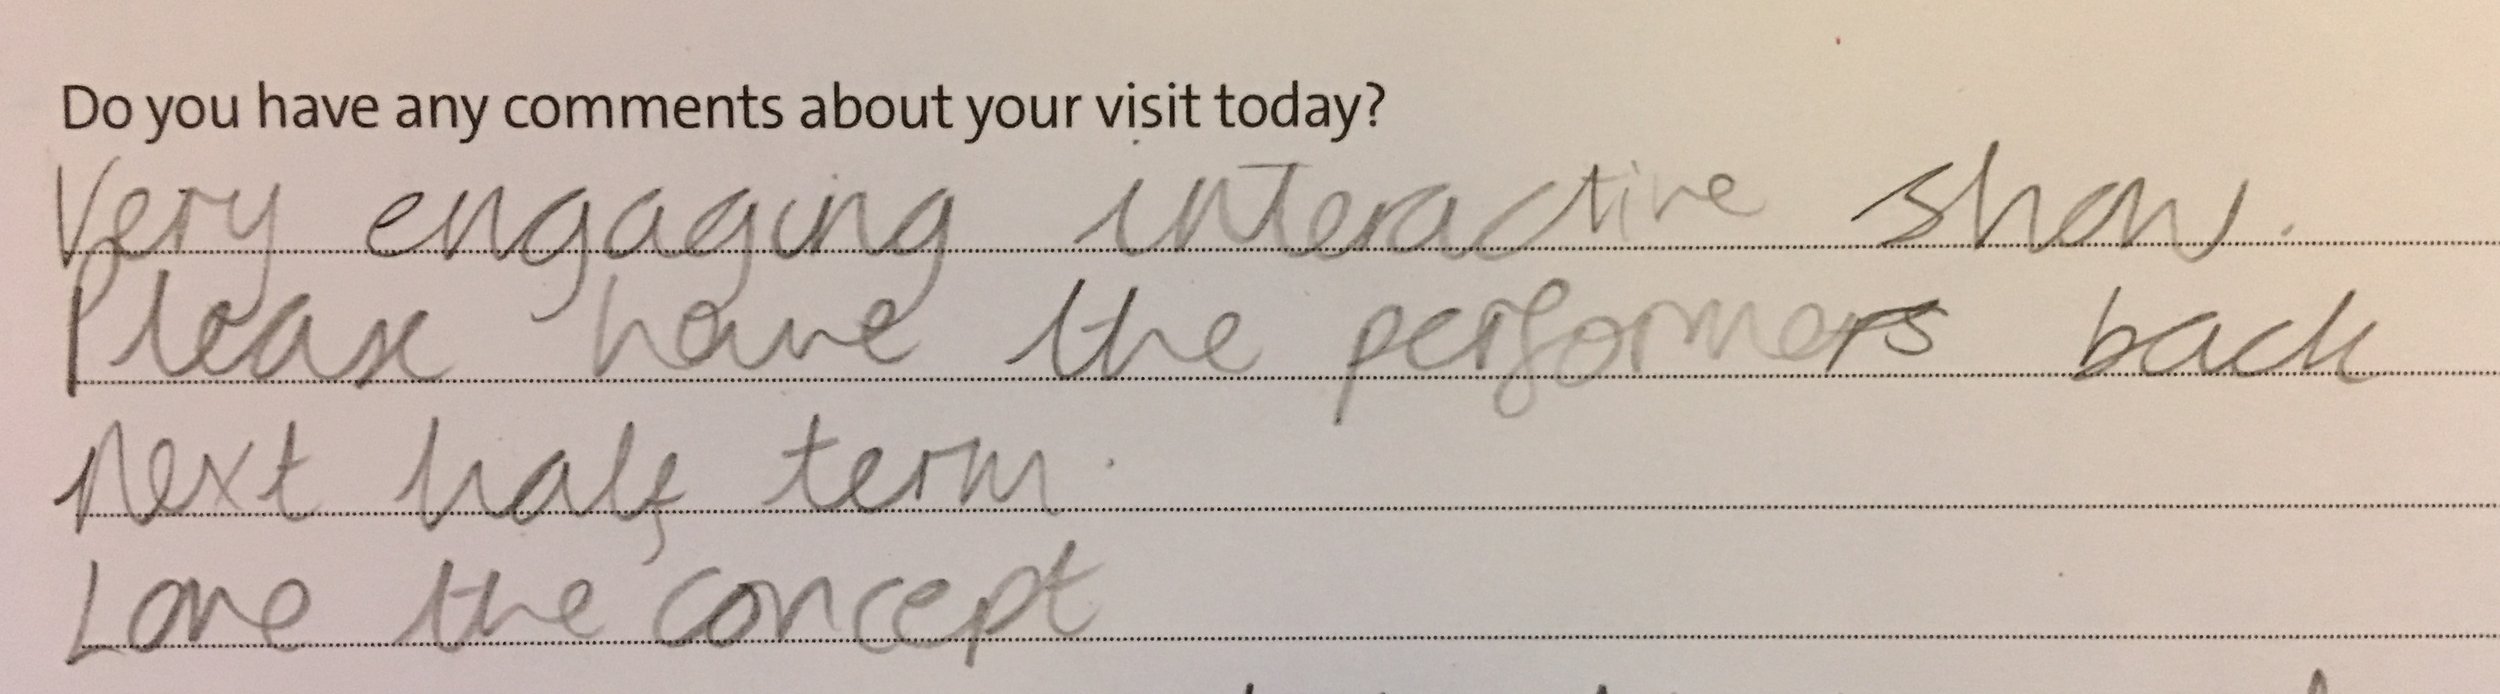 Do you have any comments about your visit today?
Very engaging interactive show.
Please have the performers back
next half term.
Love the concept